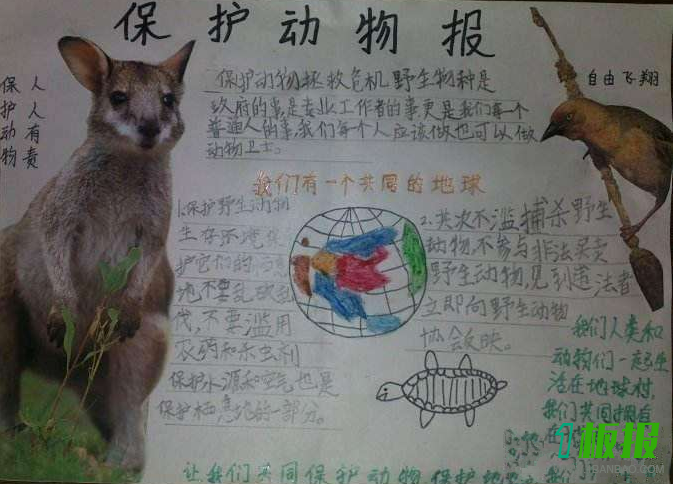 保护动物报
保护动物
人人有责
自由飞翔
保护动物拯救危机野生物种是
政府的事是专业工作者的事更是我们每一个
普通人的事,我们每个人应该做也可以做
动物卫士。
我们有一个共同的地球
1.保护野生动物
生存环境
护它们的
地不要乱砍
伐,不要滥用
农药和杀虫剂
保护水源和空气也是
保护栖息地的一部分。
2.决不滥捕杀野生
动物,不参与非法买卖
野生动物,见到违法者
立即向野生动物
协会反映。
我们人类和
动物们一起生
活在地球村,
我们共同拥有
让我们共同保护动物保护地
板报